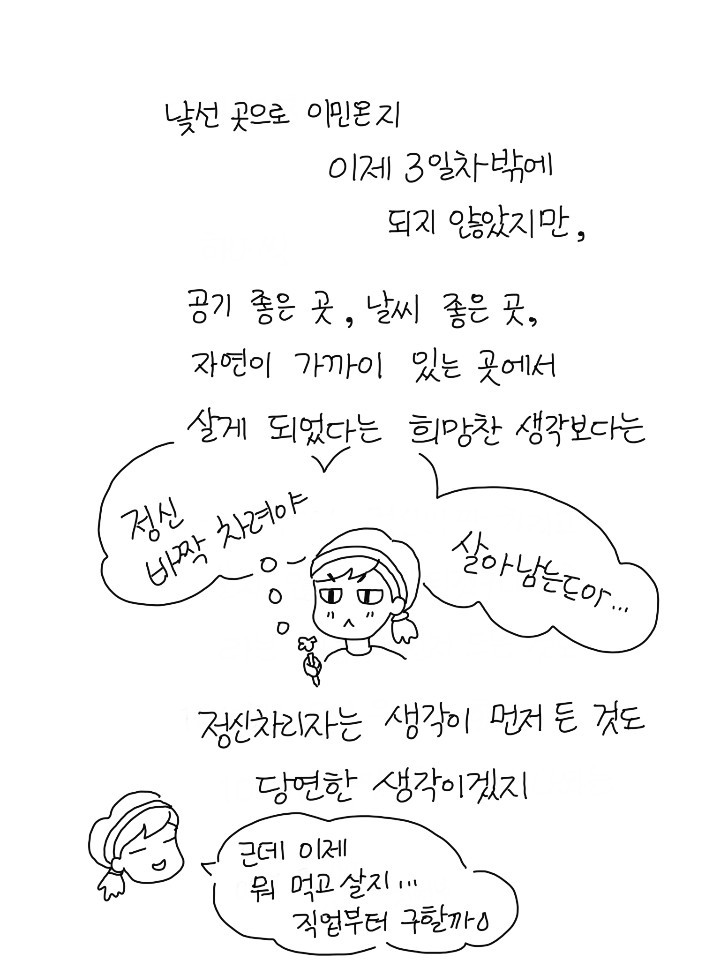 낯선 곳으로 이민온지
이제 3일차밖에
되지 않았지만,
공기 좋은 곳, 날씨 좋은 곳,
자연이 가까이 있는 곳에서
살게 되었다는 희망찬 생각보다는
정신
바짝 차려야
살아남는드아...
정신차리자는 생각이 먼저 든 것도
당연한 생각이겠지
근데 이제
뭐 먹고 살지...
직업부터 구할까